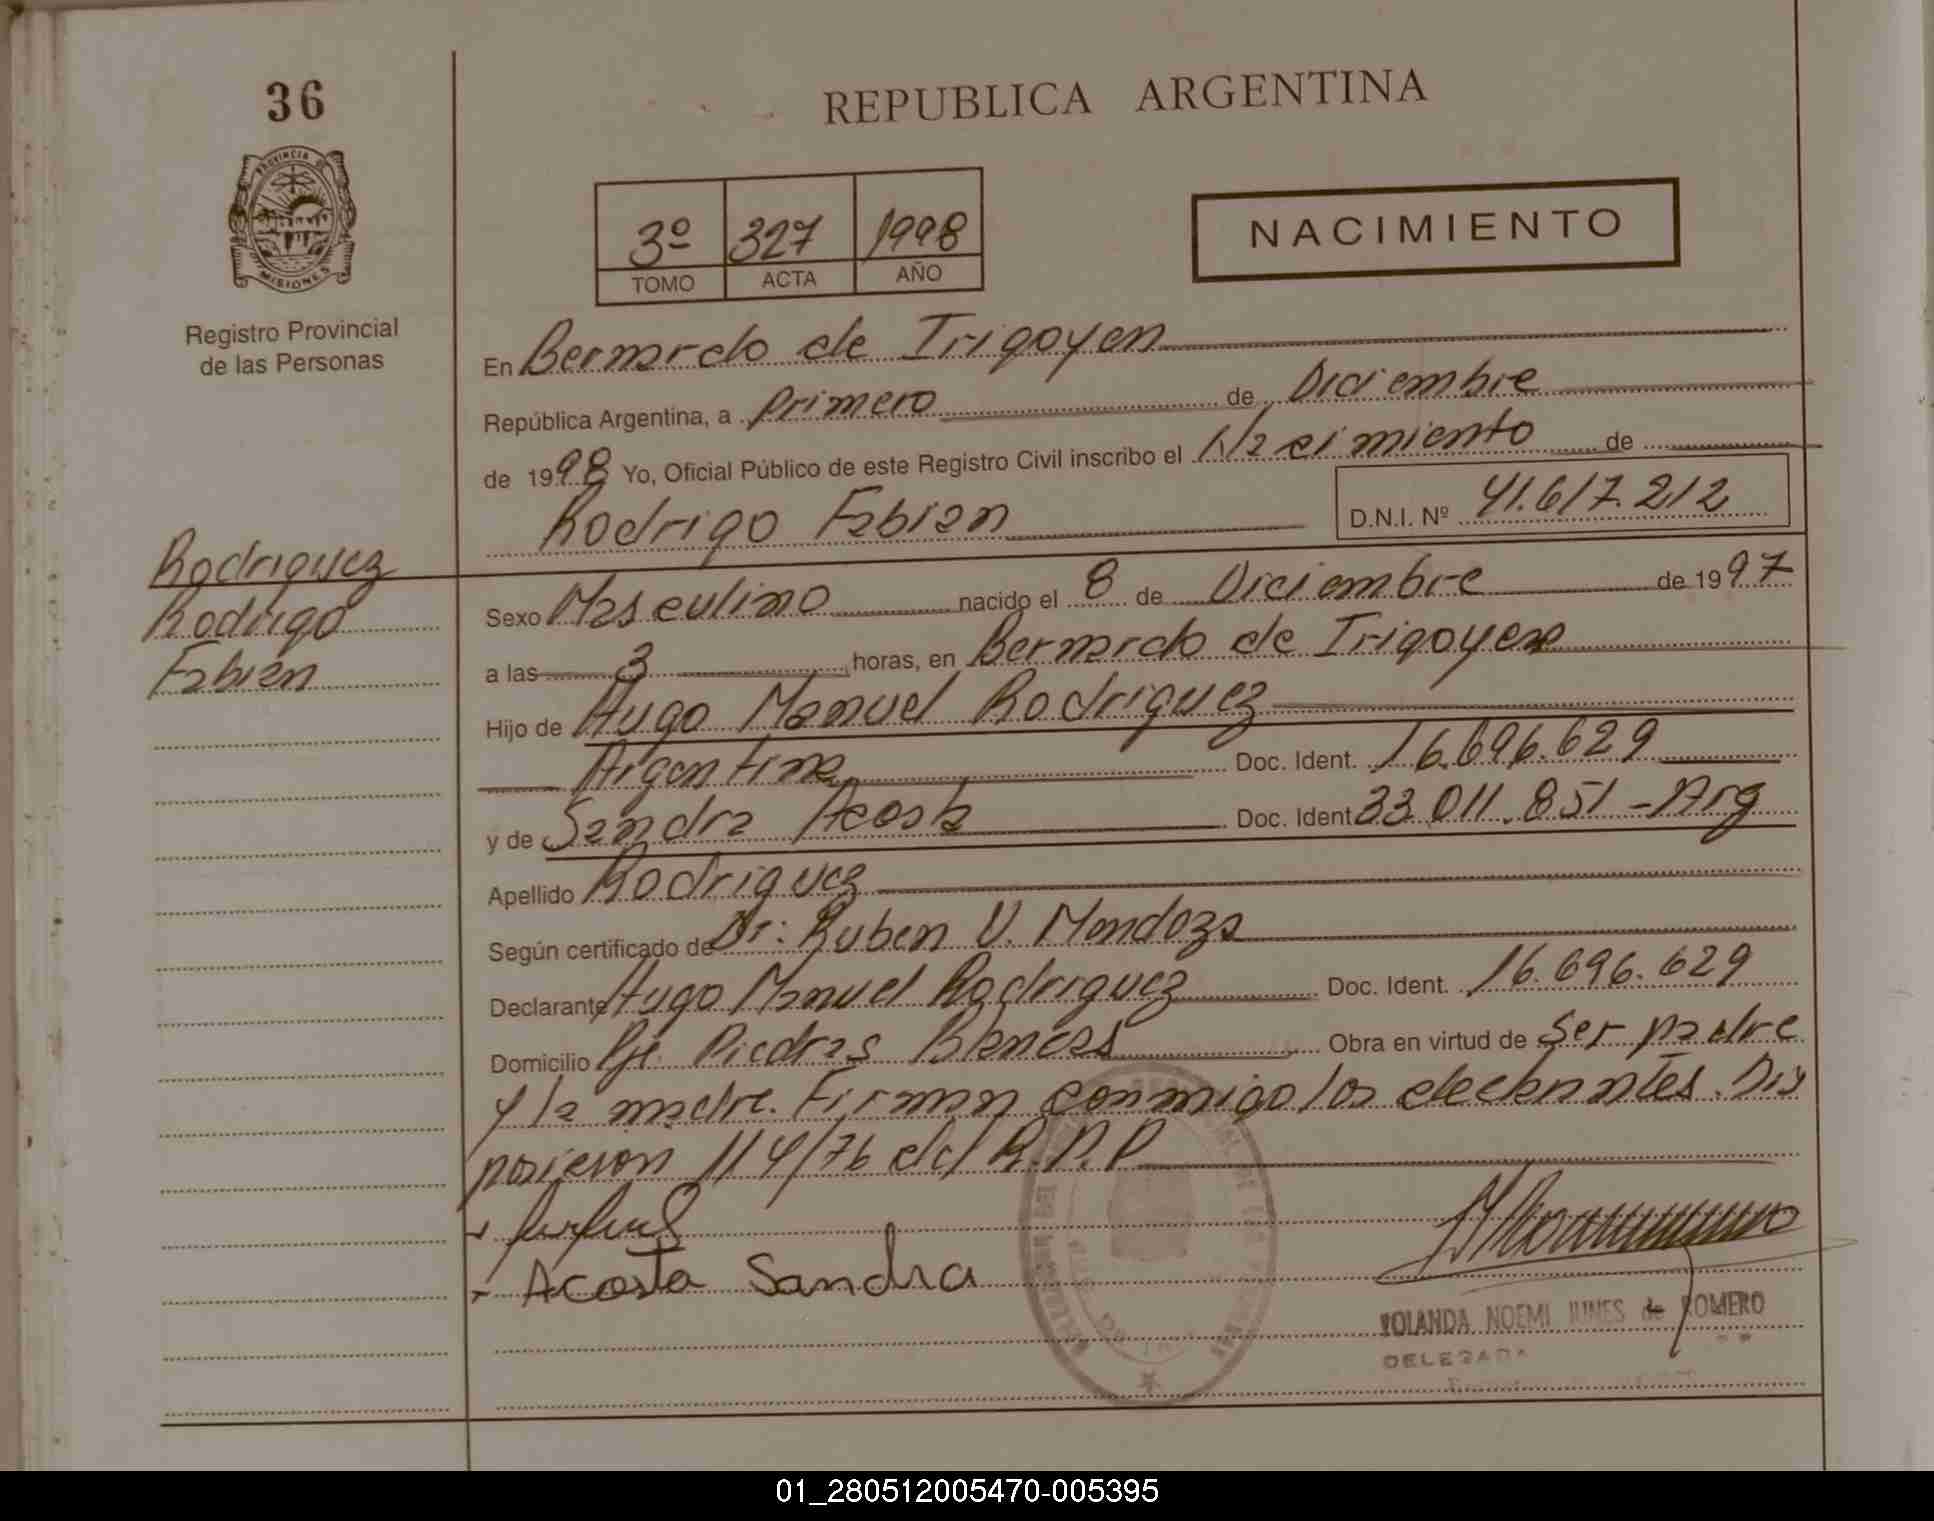 36
REPUBLICA ARGENTINA
PROVINCIA DE MISIONES
3º 327 1998
TOMO ACTA AÑO
NACIMIENTO
Registro Provincial
de las Personas
En Bernardo de Irigoyen
República Argentina, a primero de Diciembre
de 1998 Yo, Oficial Público de este Registro Civil inscribo el Nacimiento de
Rodrigo Fabian D.N.I. Nº 41.617.212
Rodriguez
Rodrigo
Fabián
Sexo Masculino nacido el 8 de Diciembre de 1997
a las 3 horas, en Bernardo de Irigoyen
Hijo de Hugo Manuel Rodriguez
Argentina Doc. Ident. 16.696.629
y de Sandra Acosta Doc. Ident 33.011.851 - Arg
Apellido Rodriguez
Según certificado de Dr: Ruben V. Mendoza
Declarante Hugo Manuel Rodriguez Doc. Ident. 16.696.629
Domicilio Pje. Piedras Blancas Obra en virtud de ser padre
y la madre. Firman conmigo los declarantes. Dis
posicion 114/76 del R.P.P
Acosta Sandra
YOLANDA NOEMI JUNES de ROMERO
DELEGADA
01_280512005470-005395